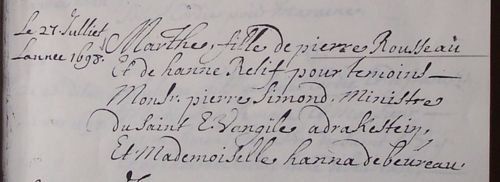 Le 27 Julliet
L'annee 1698.
Marthe, fille de pierre Rousseau
Et de hanne Retif pour temoins
Monsr. pierre Simond, Ministre
du Saint E Vangile a drakestein,
Et Mademoiselle hanna de beureau.